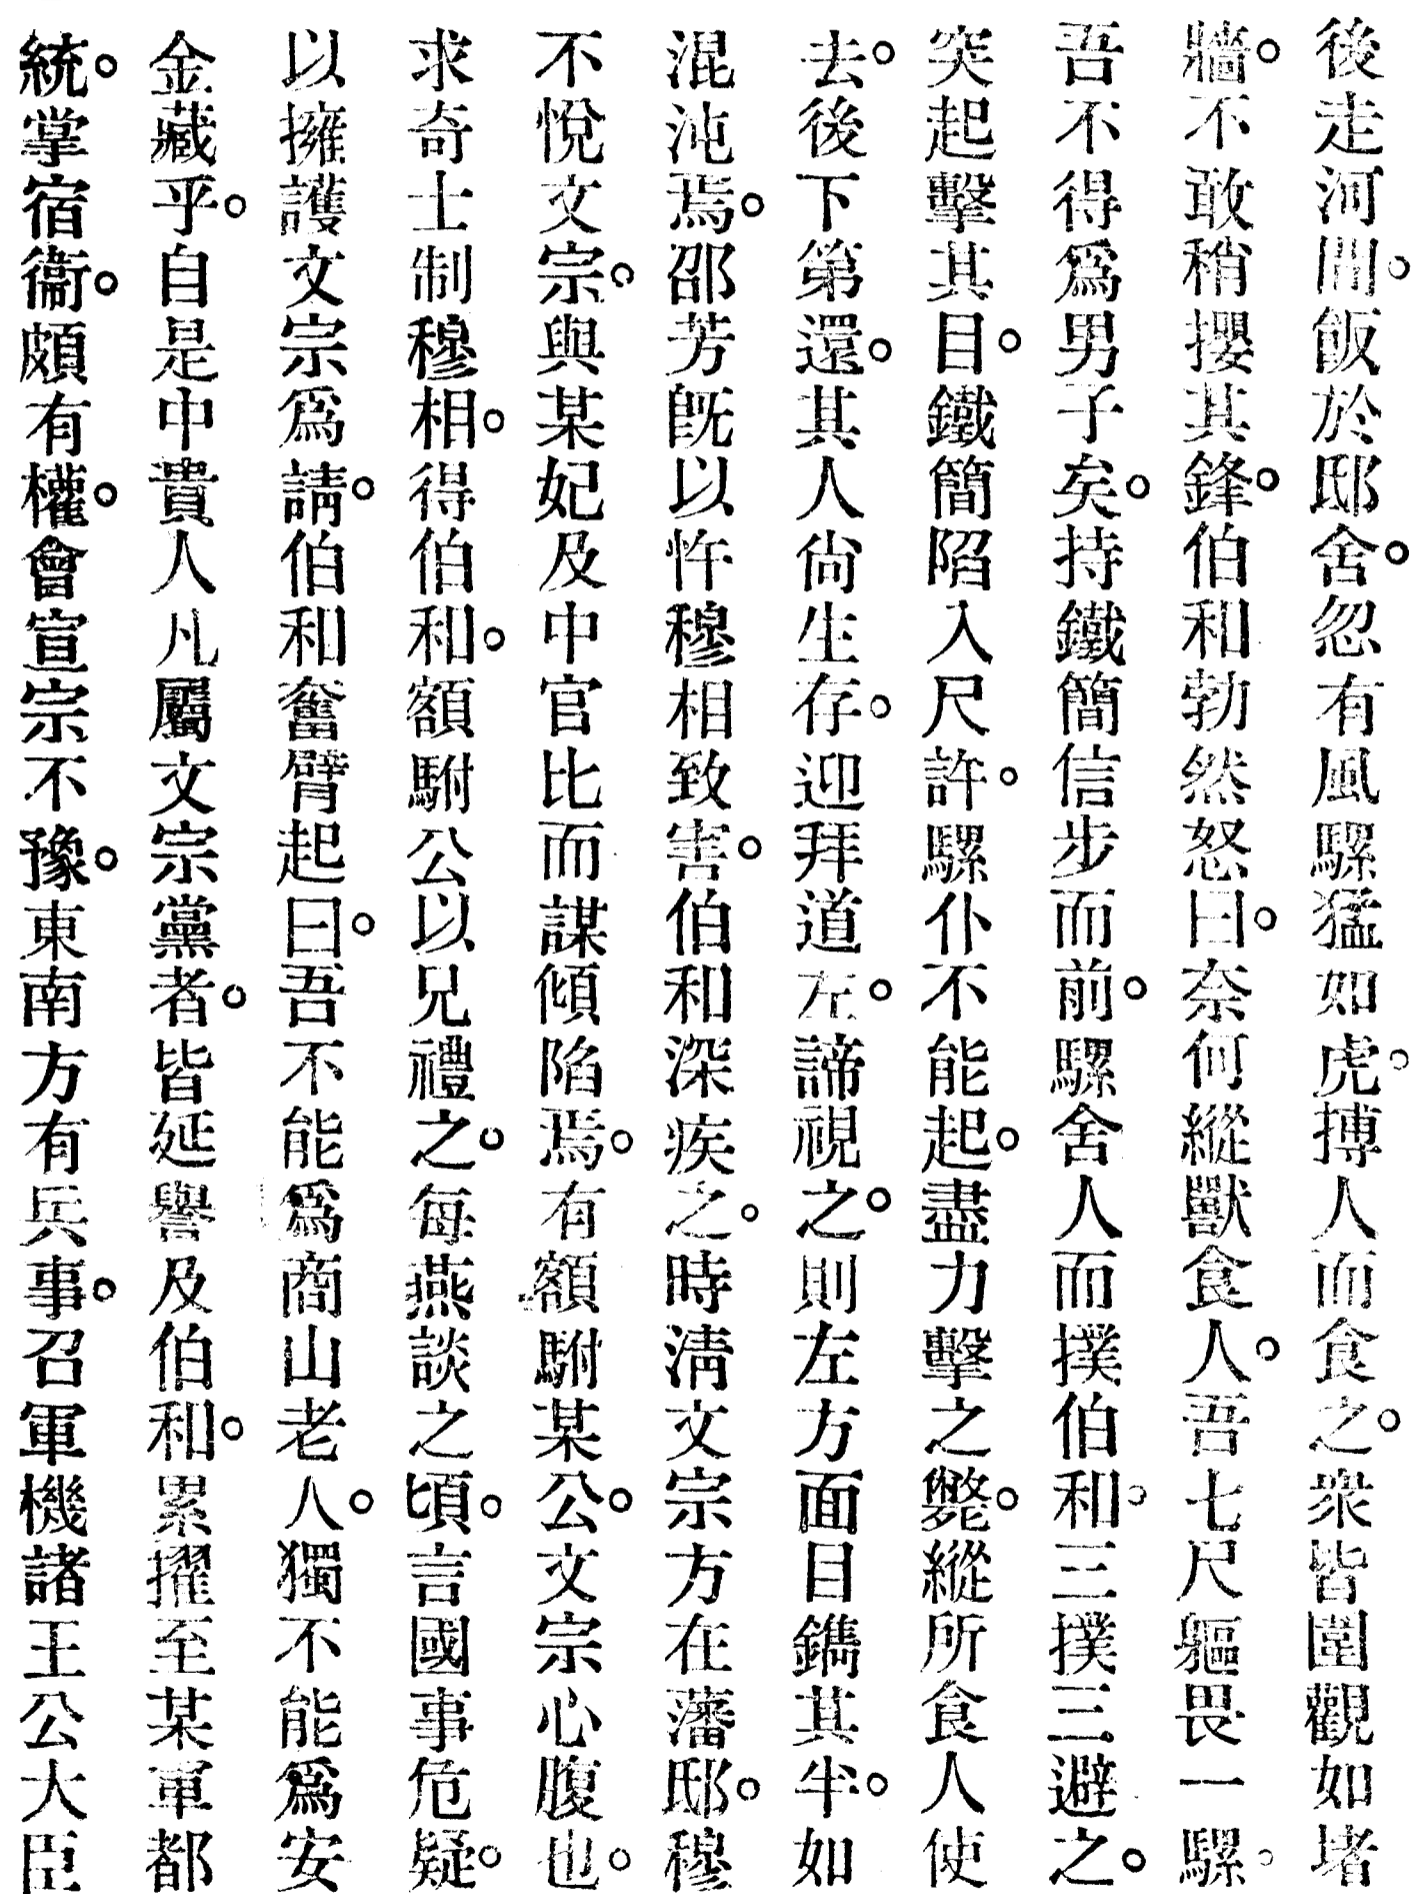 後走河間。飯於邸舍。忽有風騾猛如虎。搏人而食之。衆皆圍觀如堵
牆。不敢稍攖其鋒。伯和勃然怒曰。奈何縱獸食人。吾七尺軀畏一騾。
吾不得爲男子矣。持鐵簡信步而前。騾舍人而撲伯和。三撲三避之。
突起擊其目。鐵簡陷入尺許。騾仆不能起。盡力擊之斃。縱所食人使
去。後下第還。其人尙生存。迎拜道左。諦視之。則左方面目鐫其半。如
混沌焉。邵芳旣以忤穆相致害。伯和深疾之。時淸文宗方在藩邸。穆
不悅文宗。與某妃及中官比而謀傾陷焉。有額駙某公。文宗心腹也。
求奇士制穆相。得伯和。額駙公以兄禮之。每燕談之頃。言國事危疑。
以擁護文宗爲請。伯和奮臂起曰。吾不能爲商山老人。獨不能爲安
金藏乎。自是中貴人凡屬文宗黨者。皆延譽及伯和。累擢至某軍都
統。掌宿衞。頗有權。會宣宗不豫。東南方有兵事。召軍機諸王公大臣